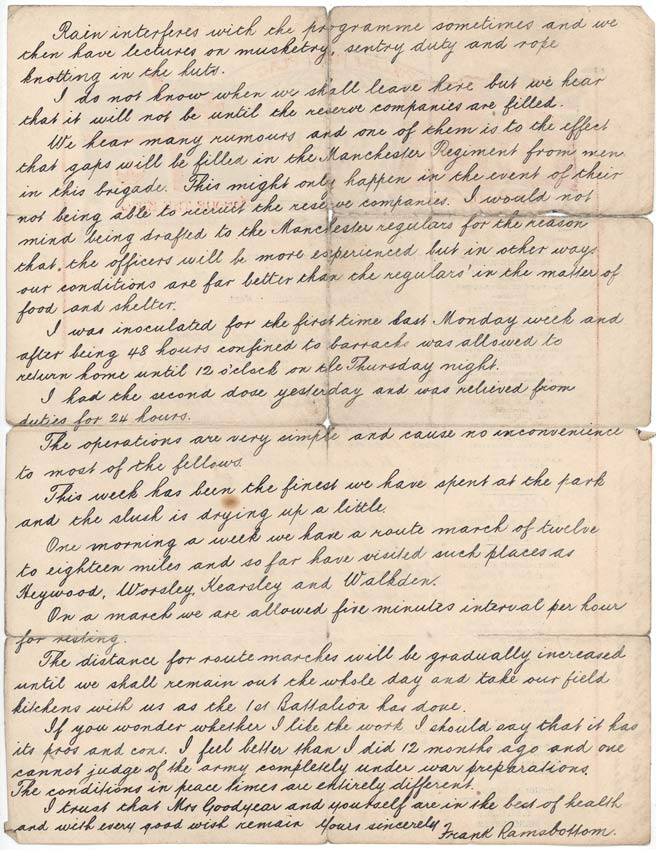 Rain interferes with the programme sometimes and we
then have lectures on musketry, sentry duty and rope
knotting in the huts.
I do not know when we shall leave here but we hear
that it will not be until the reserve companies are filled.
We hear many rumours and one of them is to the effect
that gaps will be filled in the Manchester Regiment from men
in this brigade. This might only happen in the event of their
not being able to recruit the reserve companies. I would not
mind being drafted to the Manchester regulars for the reason
that the officers will be more experienced but in other ways
our conditions are far better than the regulars' in the matter of
food and shelter.
I was inoculated for the first time last Monday week and
after being 48 hours confined to barracks was allowed to
return home until 12 o'clock on the Thursday night.
I had the second dose yesterday and was relieved from
duties for 24 hours.
The operations are very simple and cause no inconvenience
to most of the fellows.
This week has been the finest we have spent at the park
and the slush is drying up a little.
One morning a week we have a route march of twelve
to eighteen miles and so far have visited such places as
Heywood, Worsley, Kearsley and Walkden.
On a march we are allowed five minutes interval per hour
for resting.
The distance for route marches will be gradually increased
until we shall remain out the whole day and take our field
kitchens with us as the 1st Battalion has done.
If you wonder whether I like the work I should say that it has
its pros and cons. I feel better than I did 12 months ago and one
cannot judge of the army completely under war preparations.
The conditions in peace times are entirely different.
I trust that Mrs Goodyear and yourself are in the best of health
and with every good wish remain Yours sincerely Frank Ramsbottom.